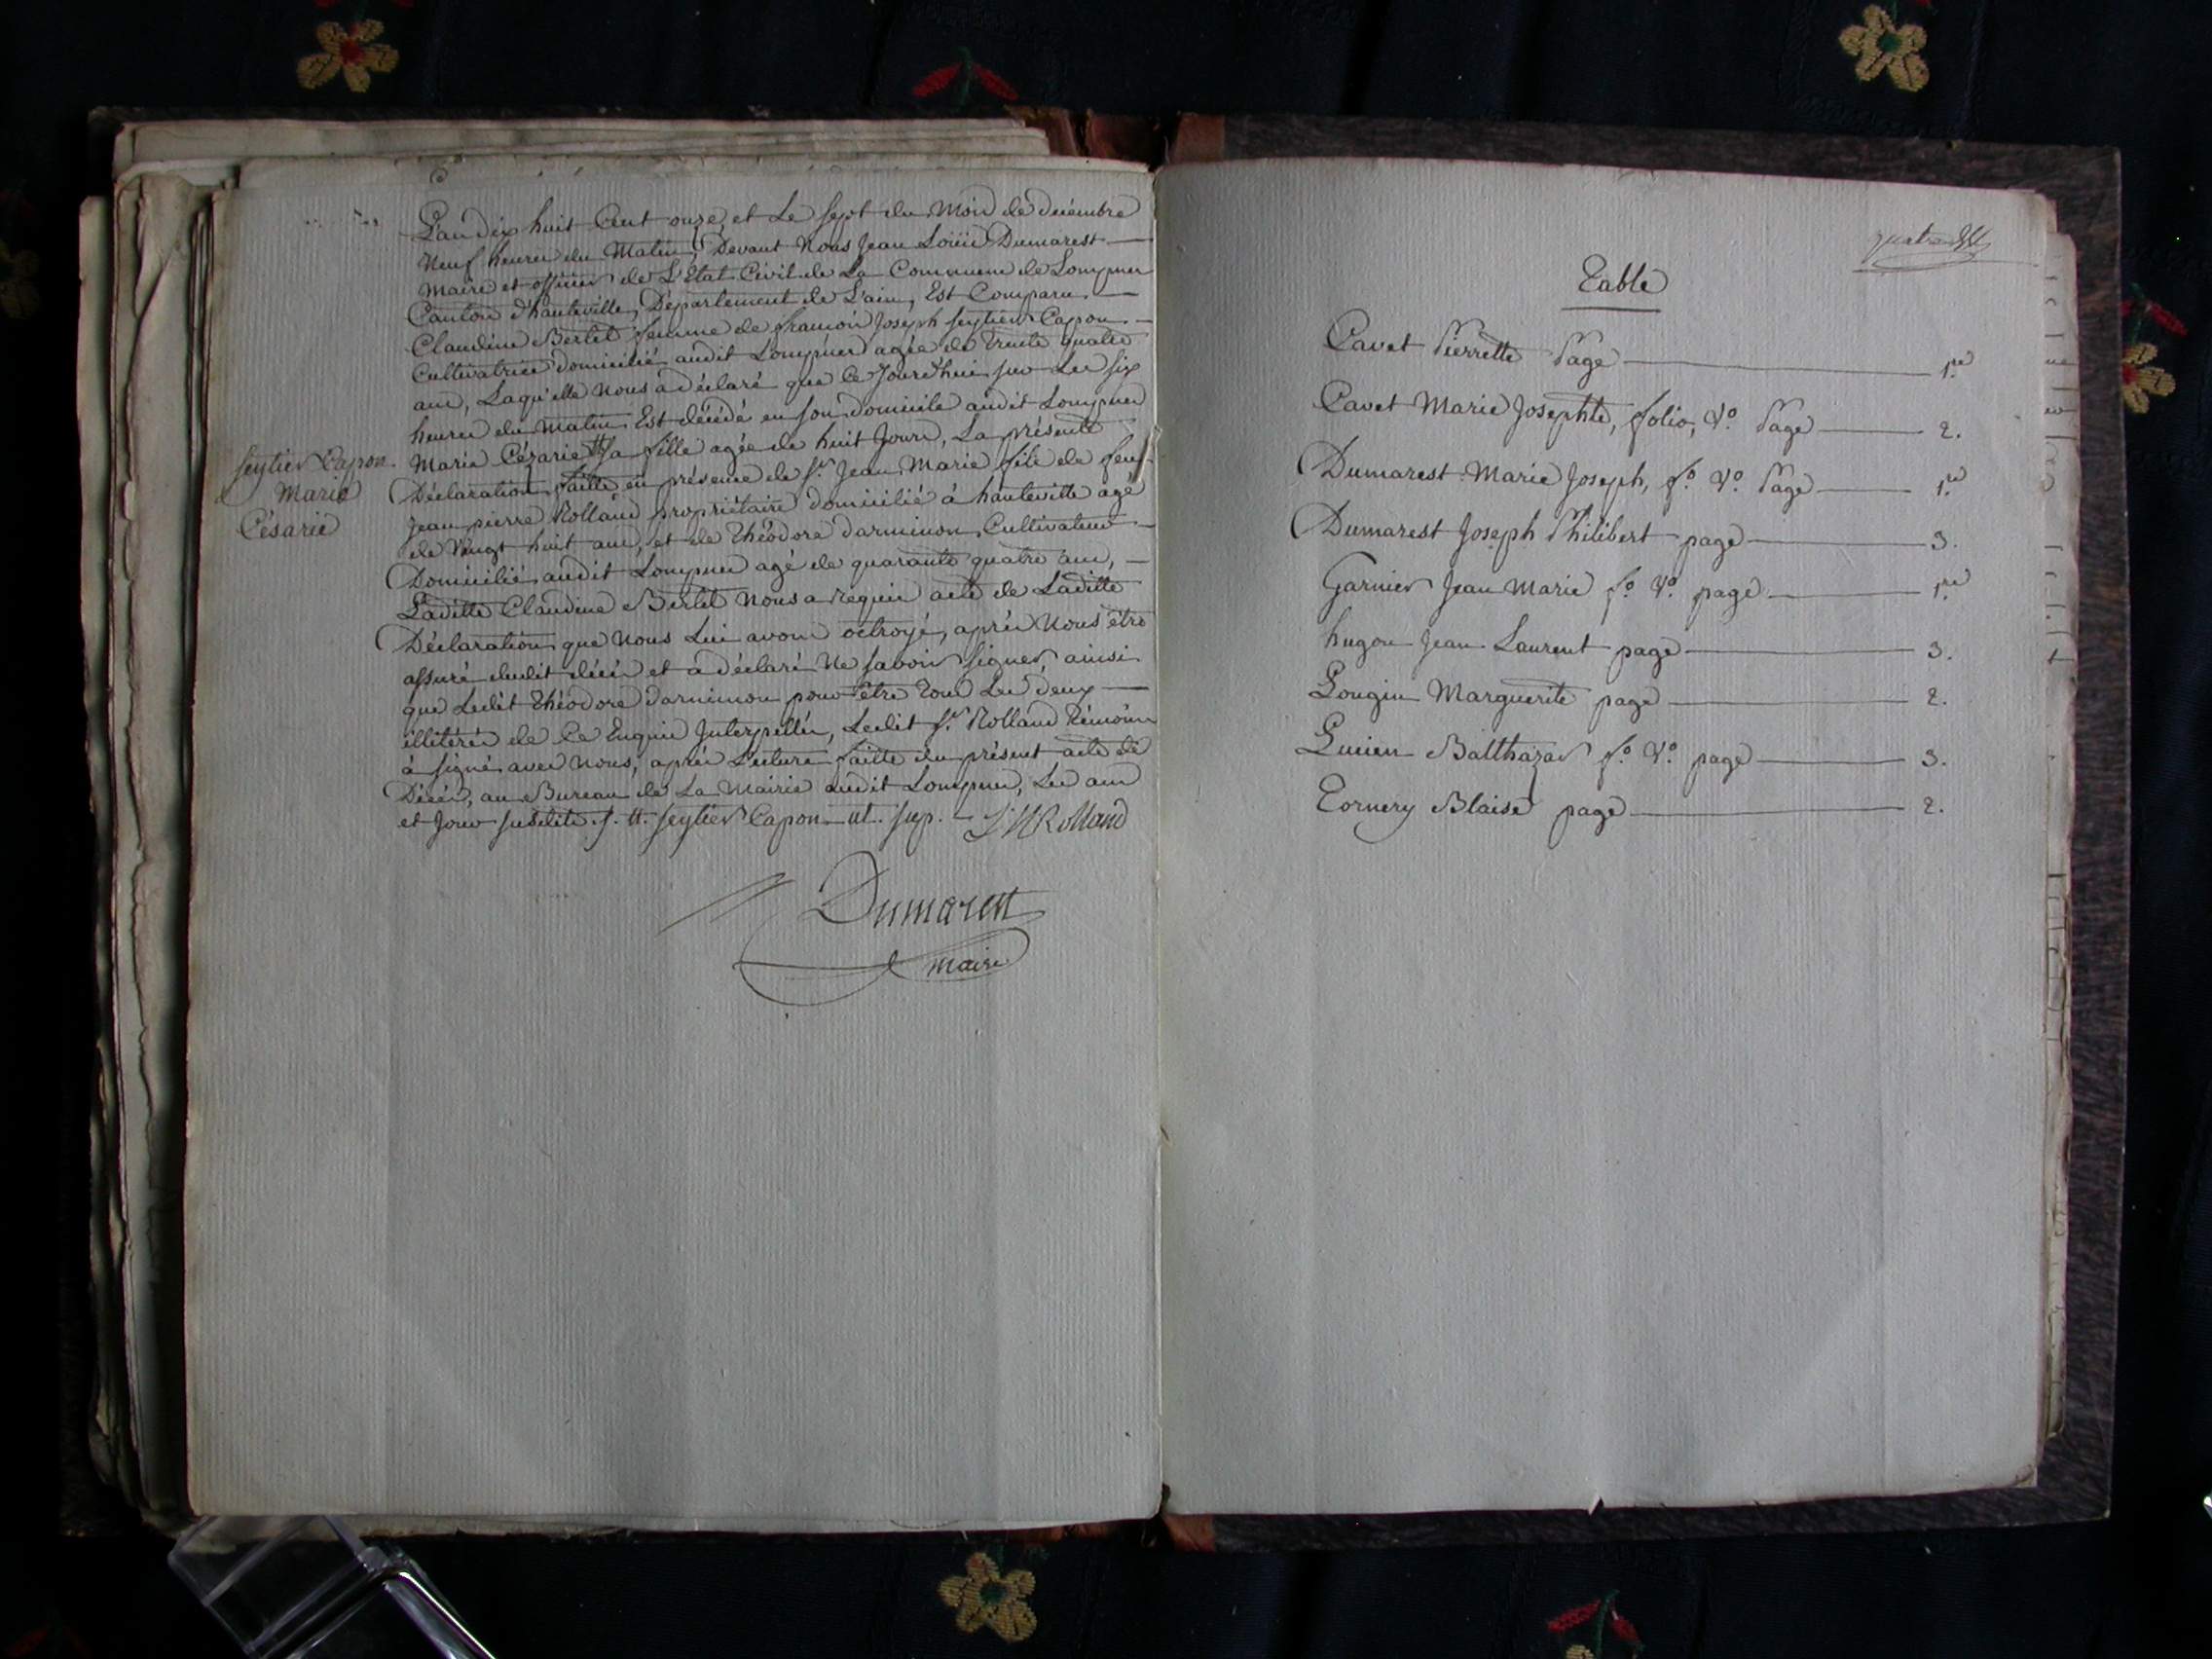 L'an dix huit Cent onze, et Le sept du Mois de décembre
Neuf heures du Matin, Devant Nous Jean Loüis Dumarest
Maire et officier de L'Etat Civil de La Commune de Lompnes
Canton d'hauteville, Département de L'ain, Est Comparu
Claudine Berlet femme de françois Joseph seytier Capon
Cultivatrice domicilié audit Lompnes agée de Trente quatre
ans, Laqu'elle Nous a déclaré que ce Jourd'hui sur Les six
heures du Matin Est décédé en son domicile audit Lompnes
Marie Cézarie # sa fille agée de huit Jours, La présente
Déclaration faitte en présence de sr. Jean Marie fils de feu
Jean pierre Rolland propriétaire domicilié à hauteville agé
de Vingt huit ans, et de Théodore darminon Cultivateur
Domicilié audit Lompnes agé de quarante quatre ans,
Laditte Claudine Berlet Nous a requis acte de Laditte
Déclaration que Nous Lui avons octroyé, après Nous être
assuré dudit décès et a déclaré Ne savoir signer, ainsi
que Ledit Théodore darminon pour être Tous Les deux
illitérés de ce Enquis Interpellés, Ledit sr. Rolland Témoin
à signé avec Nous, après Lecture faitte du présent acte de
Décès, au Bureau de La Mairie audit Lompnes, Les an
et Jour susdits ./. #. seytier Capon ut. sup. J M Rolland
seytier Capon
Marie
Césarie
Dumarest
maire
quatre
Table
Cavet Pierrette Page 1.re
Cavet Marie Josephte, folio, Vo. Page 2.
Dumarest Marie Joseph, fo. Vo. Page 1.re
Dumarest Joseph Philibert page 3.
Garnier Jean Marie fo. Vo. page 1.re
hugon Jean Laurent page 3.
Longin Marguerite page 2.
Lucien Balthazar fo. Vo. page 3.
Tornery Blaise page 2.